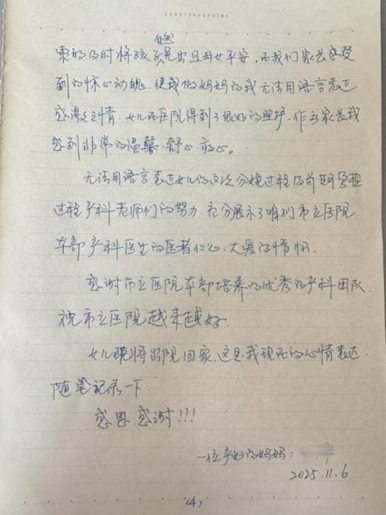 自然
索的及时将孩子先出且母女平安,而我们家长感受
到的惊心动魄,使我做妈妈的我无法用语言表达
感激之情,女儿在医院得到了最好的照护,作为家长我
感到非常的温馨、舒心、放心。
无法用语言表达女儿的这次分娩过程及前期孕检
过程产科老师们的努力,充分展示了咱们市立医院
东部产科医生的医者仁心,大爱的情怀。
感谢市立医院东部培养的优秀的产科团队
祝市立医院越来越好。
女儿现将出院回家,这是我现在的心情表达
随笔记录一下。
感恩感谢!!!
一位产妇的妈妈:
2025.11.6
(4)